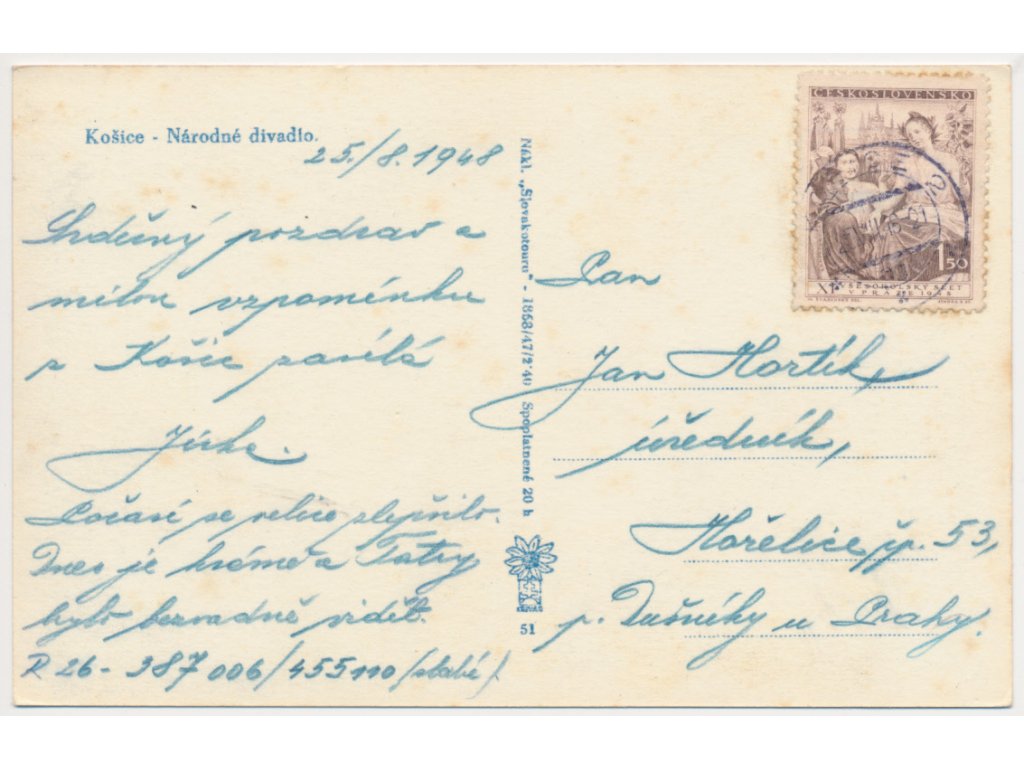 Košice - Národné divadlo.
25./8. 1948
Srdečný pozdrav a
milou vzpomínku
z Košic zasílá
Jirka.
Počasí se velice zlepšilo.
Dnes je krásně a Tatry
bylo bezvadně vidět.
R 26 - 387 006/455 110 (slabé).
Nákl. „Slovakotouru" - 1868/47/2'40 Spoplatnené 20 h
51
ČESKOSLOVENSKO
1.50
XI. VŠESOKOLSKÝ SLET
V PRAZE 1948
Pan
Jan Hortík,
úředník,
Hořelice čp. 53,
p. Dušníky u Prahy.